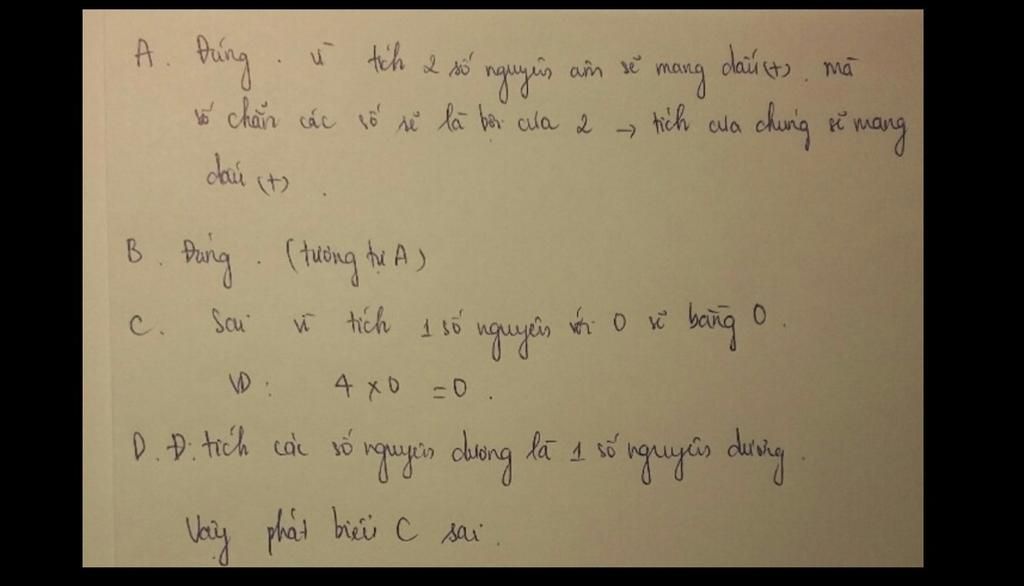 A. Đúng. vì tích 2 số nguyên âm sẽ mang dấu (+). mà
số chẵn các số sẽ là bội của 2 → tích của chúng sẽ mang
dấu (+).
B. Đúng. (tương tự A)
C. Sai vì tích 1 số nguyên với 0 sẽ bằng 0.
VD: 4 x 0 = 0.
D. Đ: tích các số nguyên dương là 1 số nguyên dương.
Vậy phát biểu C sai.